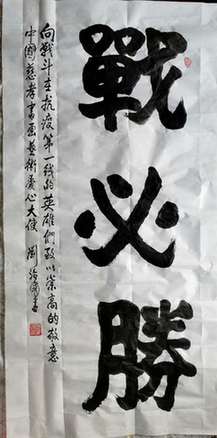 戰必勝
向戰斗在抗疫第一线的英雄們致以崇高的敬意
中國慈孝書画藝術爱心大使